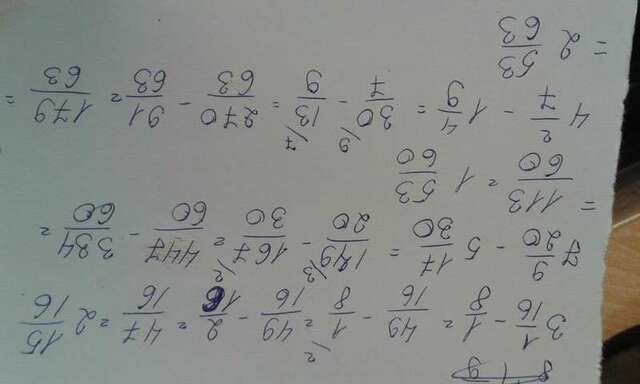 3 1/16 - 1/8 = 49/16 - 1/8 \2 = 49/16 - 2/16 = 47/16 = 2 15/16
7 9/20 - 5 17/30 = 149/20 \3 - 167/30 \2 = 447/60 - 334/60 =
= 113/60 = 1 53/60
4 2/7 - 1 4/9 = 30/7 \9 - 13/9 \7 = 270/63 - 91/63 = 179/63 =
= 2 53/63